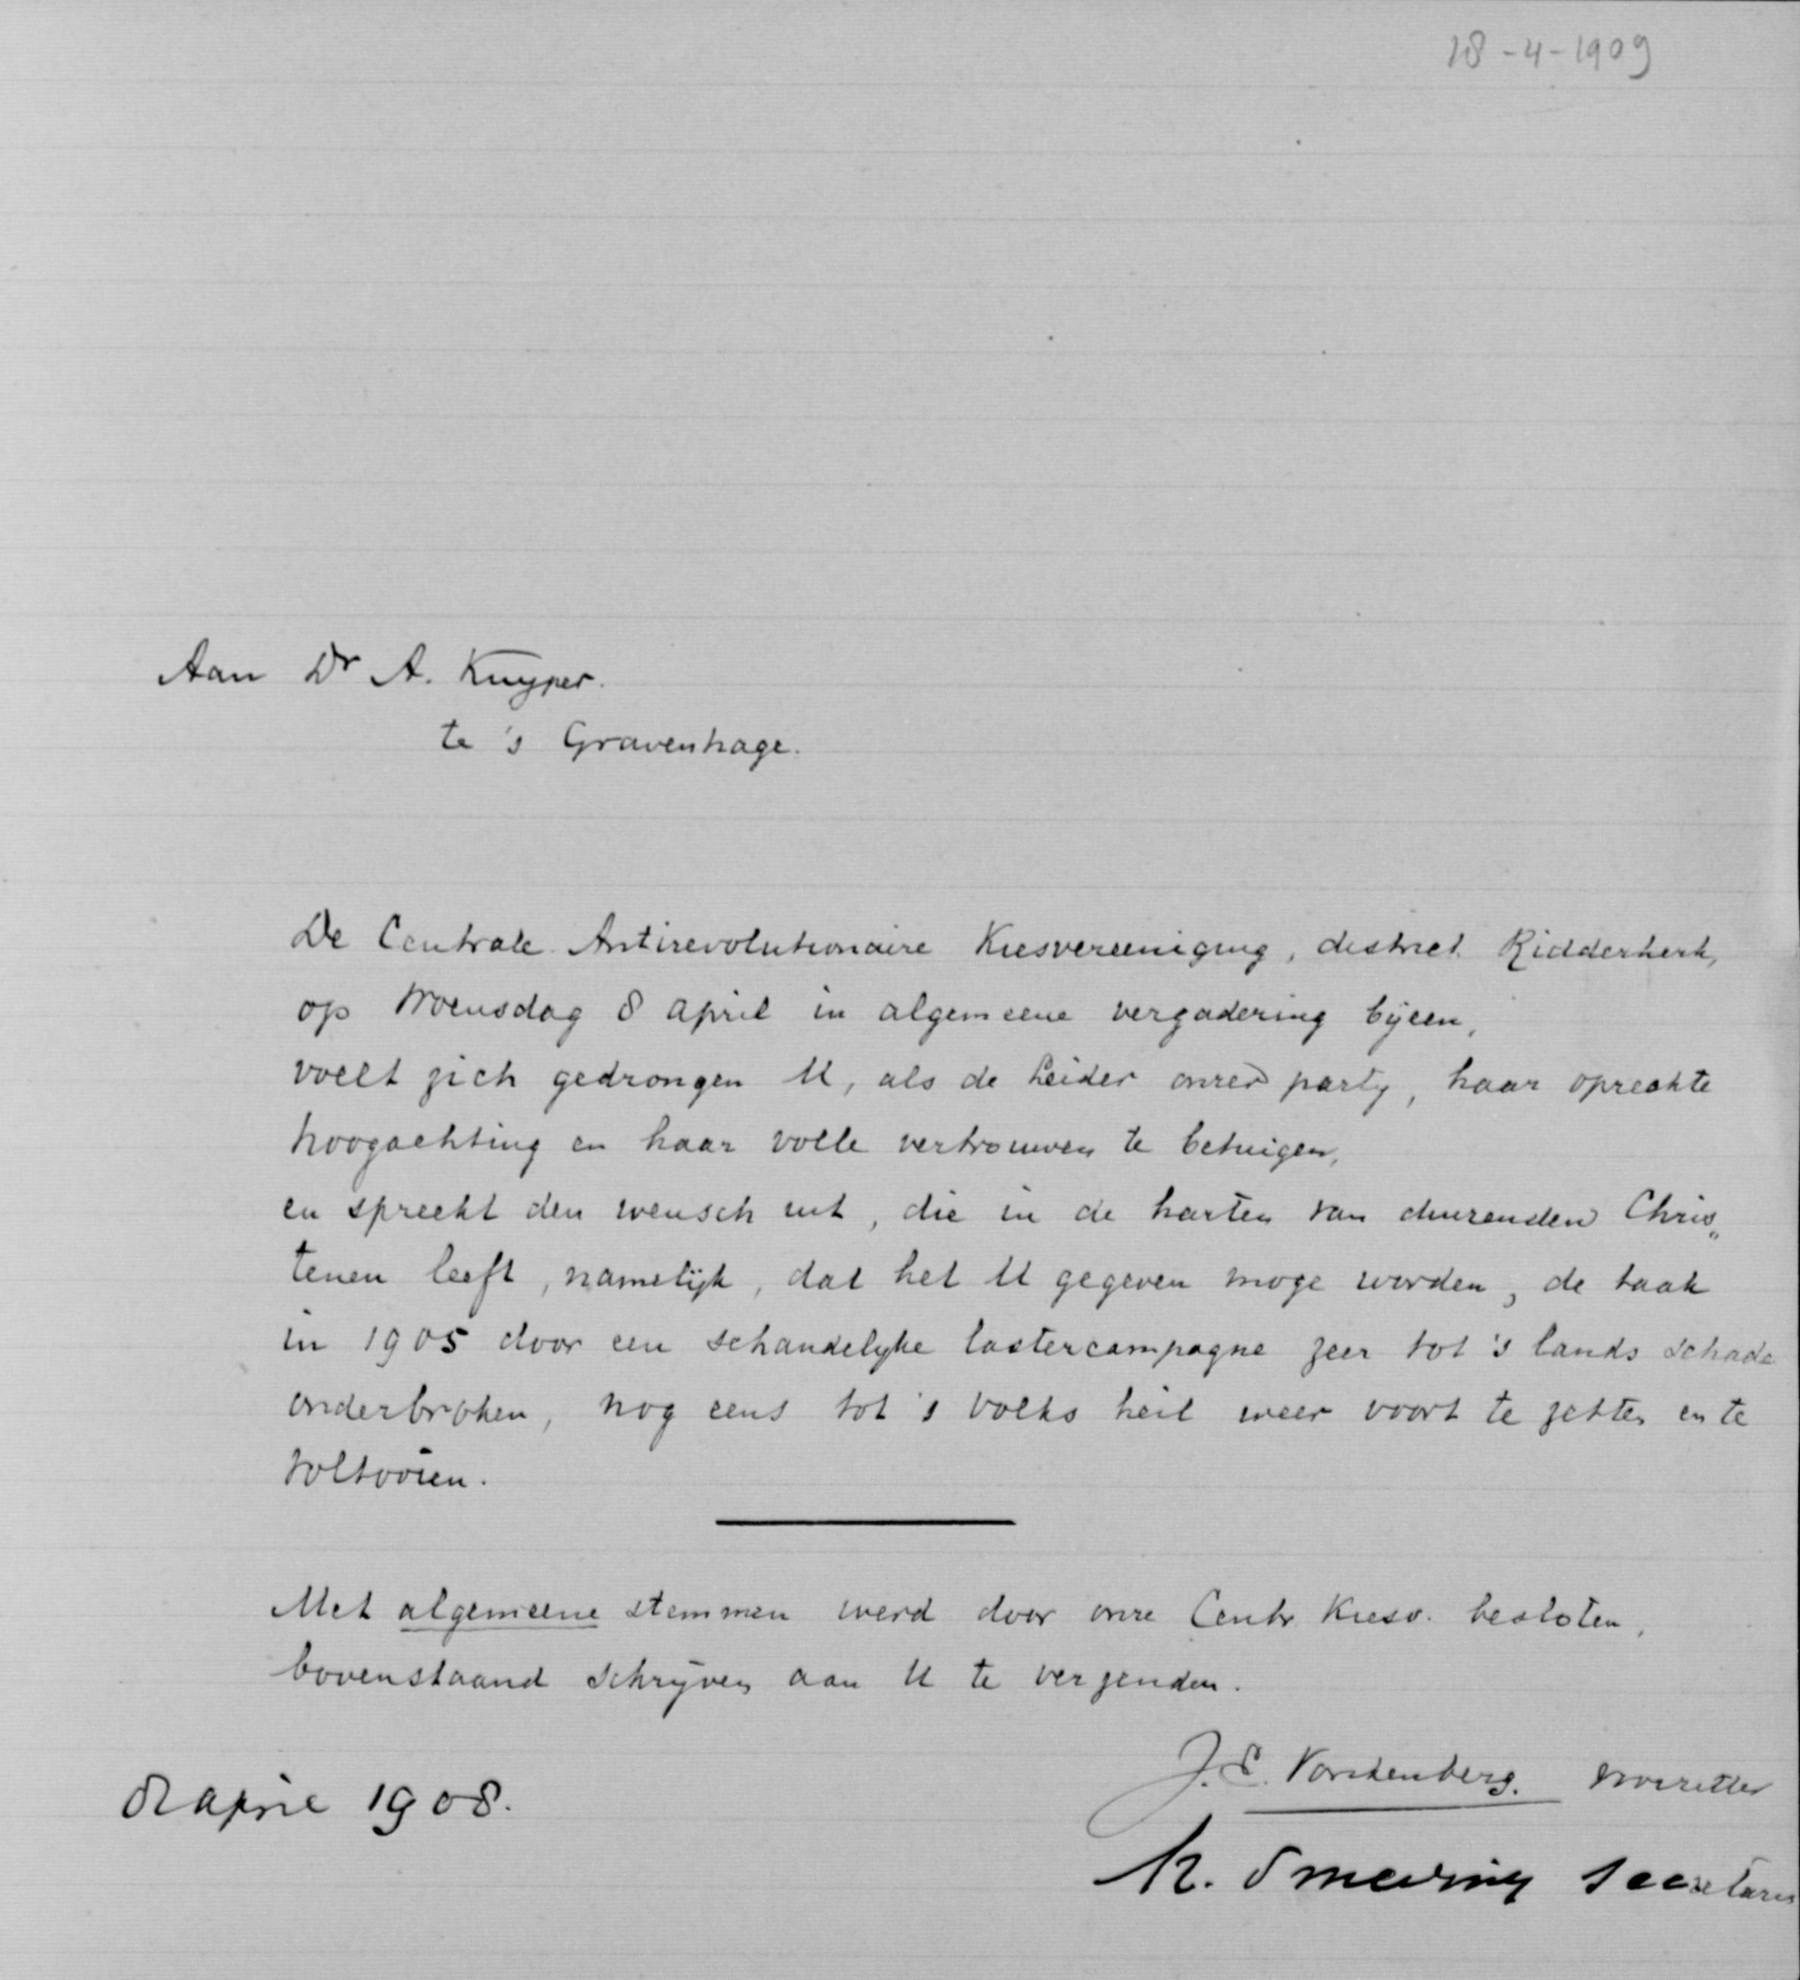 18-4-1909
Aan Dr A. Kuyper.
te 's Gravenhage.
De Centrale Antirevolutionaire Kiesvereeniging, district Ridderkerk,
op Woensdag 8 April in algemeene vergadering bijeen,
voelt zich gedrongen U, als de Leider onzer party, haar oprechte
hoogachting en haar volle vertrouwen te betuigen,
en spreekt den wensch uit, die in de harten van duizenden Chris„
tenen leeft, namelijk, dat het U gegeven moge worden, de taak
in 1905 door een schandelyke lastercampagne zeer tot 's lands schade
onderbroken, nog eens tot 's volks heil weer voort te zetten en te
voltooien.
Met algemeene stemmen werd door onze Centr. Kiesv. besloten,
bovenstaand schrijven aan U te verzenden.
J. C. Vorstenberg. Voorzitter
8 April 1908.
K. Smeding Secretaris